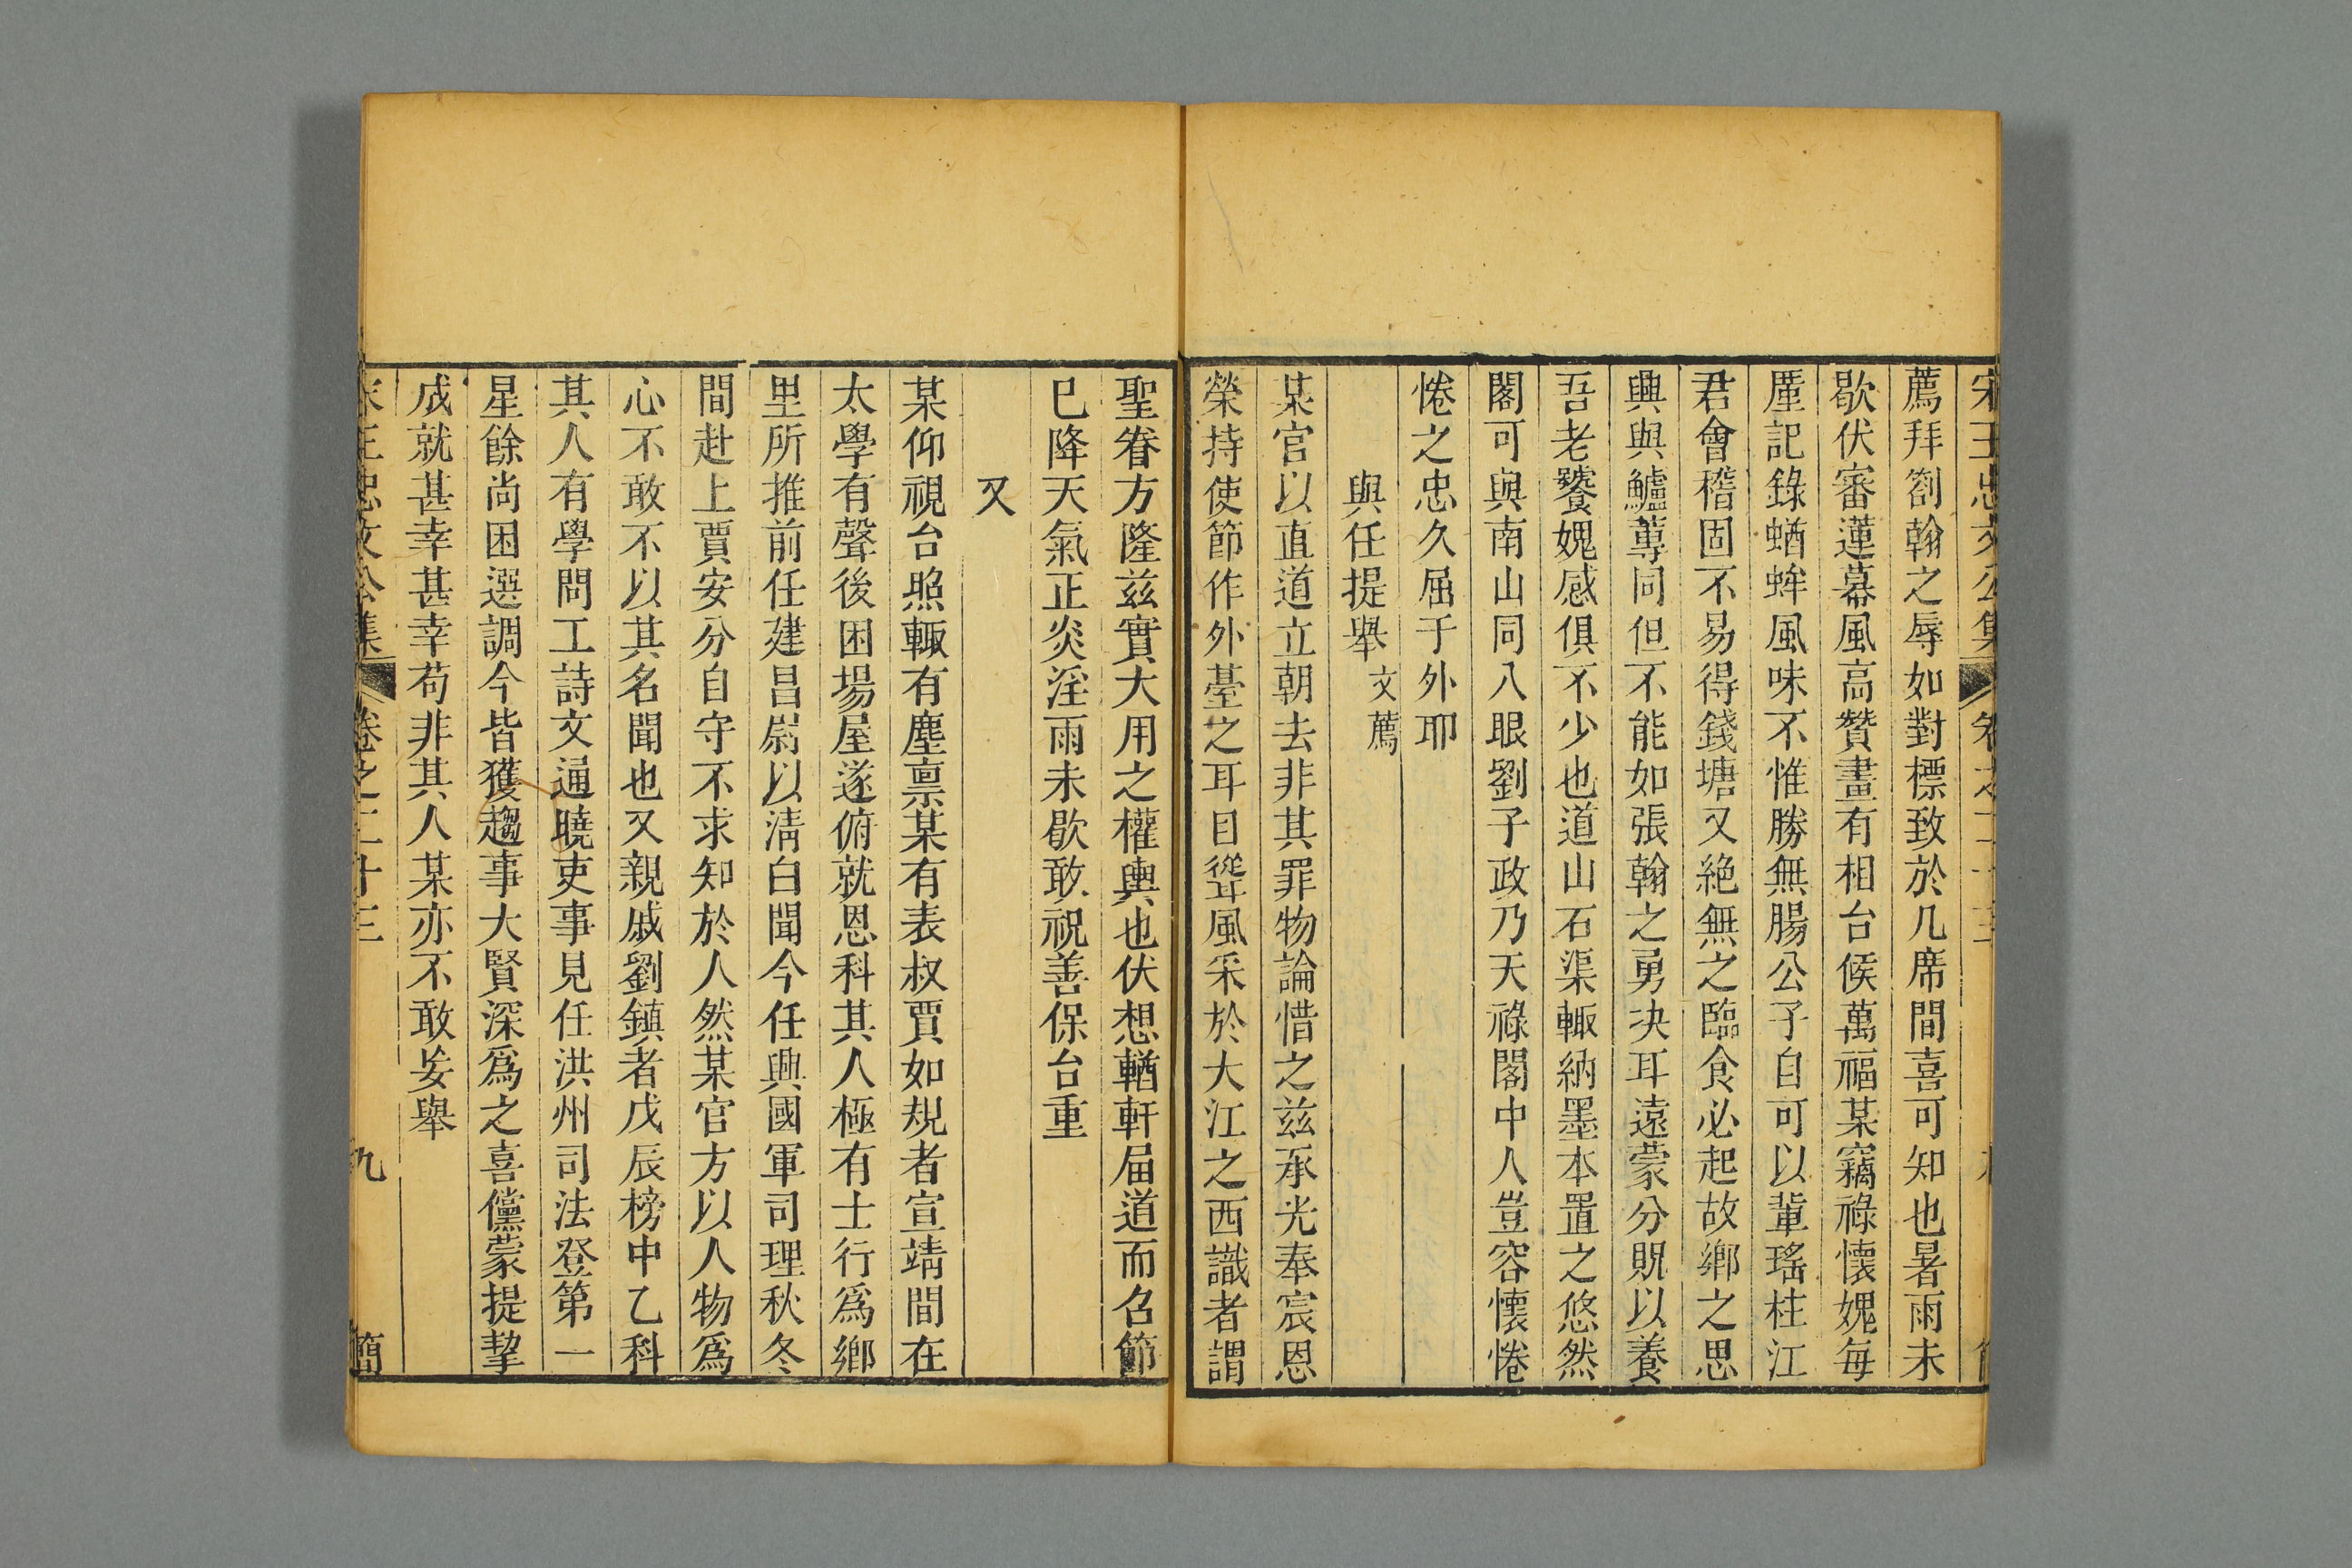 薦拜劄翰之辱如對標致於几席間喜可知也暑雨未
歇伏審蓮幕風高贊畫有相台候萬福某竊祿懷媿每
厪記錄蝤蛑風味不惟勝無腸公子自可以輩瑤柱江
君會稽固不易得錢塘又絕無之臨食必起故鄉之思
興與鱸蓴同但不能如張翰之勇决耳遠蒙分貺以養
吾老饕媿感俱不少也道山石渠輙納墨本置之悠然
閣可與南山同入眼劉子政乃天祿閣中人豈容懷惓
惓之忠久屈于外耶
與任提舉文薦
某官以直道立朝去非其罪物論惜之兹承光奉宸恩
榮持使節作外臺之耳目聳風采於大江之西識者謂
聖眷方隆兹實大用之權輿也伏想輶軒届道而召節
巳降天氣正炎淫雨未歇敢祝善保台重
又
某仰視台照輙有塵禀某有表叔賈如規者宣靖間在
太學有聲後困場屋遂俯就恩科其人極有士行爲鄉
里所推前任建昌尉以清白聞今任興國軍司理秋冬
間赴上賈安分自守不求知於人然某官方以人物爲
心不敢不以其名聞也又親戚劉鎮者戊辰榜中乙科
其人有學問工詩文通曉吏事見任洪州司法登第一
星餘尚困選調今皆獲趨事大賢深爲之喜儻蒙提挈
成就甚幸甚幸苟非其人某亦不敢妄舉
宋王忠文公集 卷之二十三 九 簡